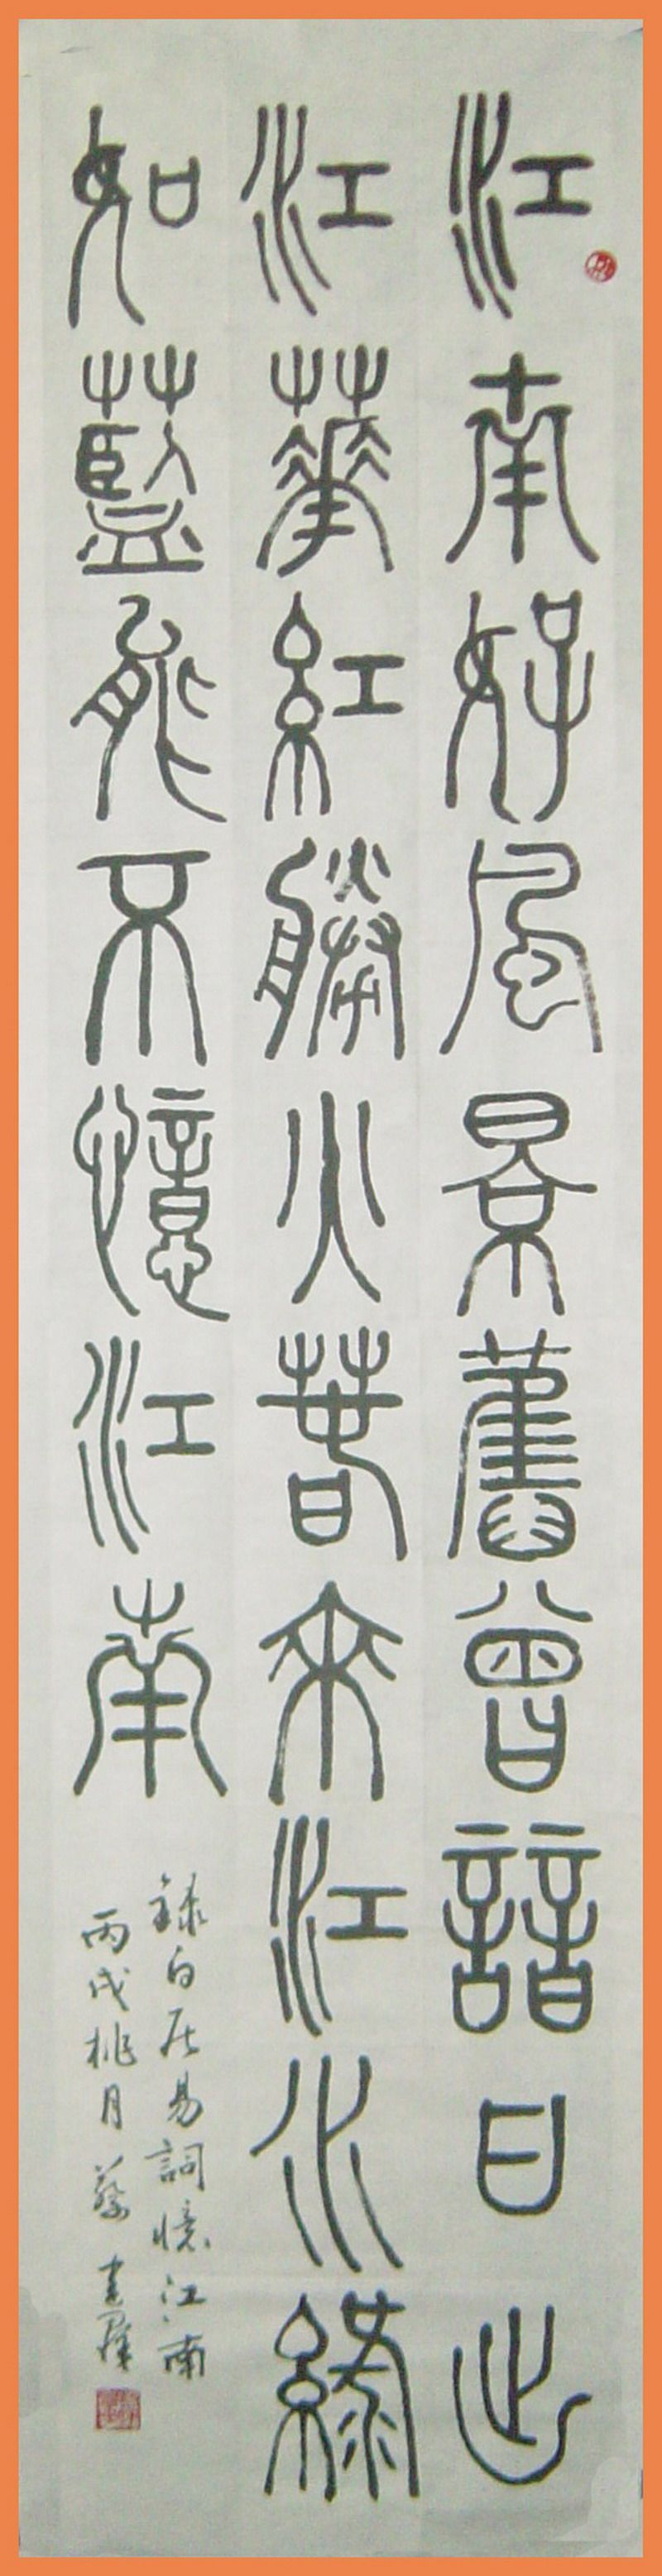 江南好風景舊曾諳日出
江華紅勝火春來江水綠
如藍能不憶江南
錄白居易詞憶江南
丙戌桃月 蔡